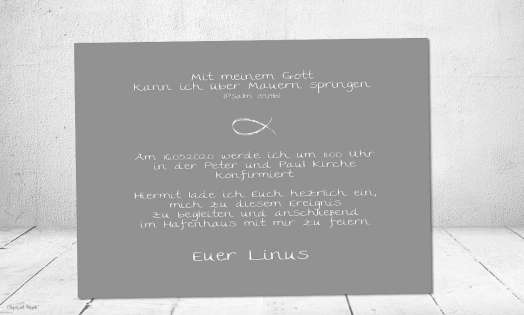 Mit meinem Gott
kann ich über Mauern springen
Am 16.05.2020 werde ich um 11:00 Uhr
in der Peter und Paul Kirche
konfirmiert
Hiermit lade ich Euch herzlich ein,
mich zu diesem Ereignis
zu begleiten und anschließend
im Hafenhaus mit mir zu feiern
Euer Linus